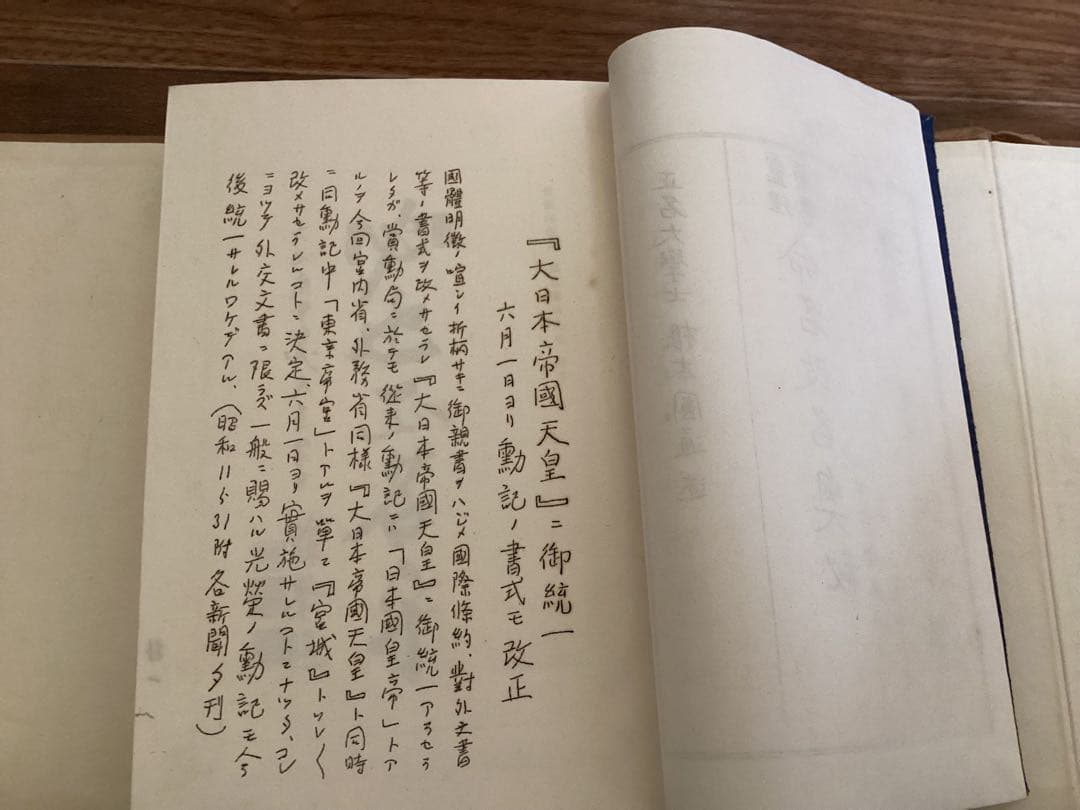 『大日本帝國天皇』ニ御統一
六月一日ヨリ勳記ノ書式モ改正
國體明徴ノ喧シイ折柄サキニ御親書ヲハジメ國際條約、對外文書
等ノ書式ヲ改メサセラレ『大日本帝國天皇』ニ御統一アラセラ
レタガ、賞勳局ニ於テモ從来ノ勳記ニハ「日本國皇帝」トア
ルノヲ今回宮内省、外務省同様『大日本帝國天皇』ト同時
ニ同勳記中「東京帝宮」トアルヲ単ニ『宮城』トツレ〱
改メサセラレルコトニ決定、六月一日ヨリ實施サレルコトニナツタ、コレ
ニヨツテ外交文書ニ限ラズ一般ニ賜ハル光榮ノ勳記モ今
後統一サレルワケデアル、（昭和11、5、31附各新聞夕刊）